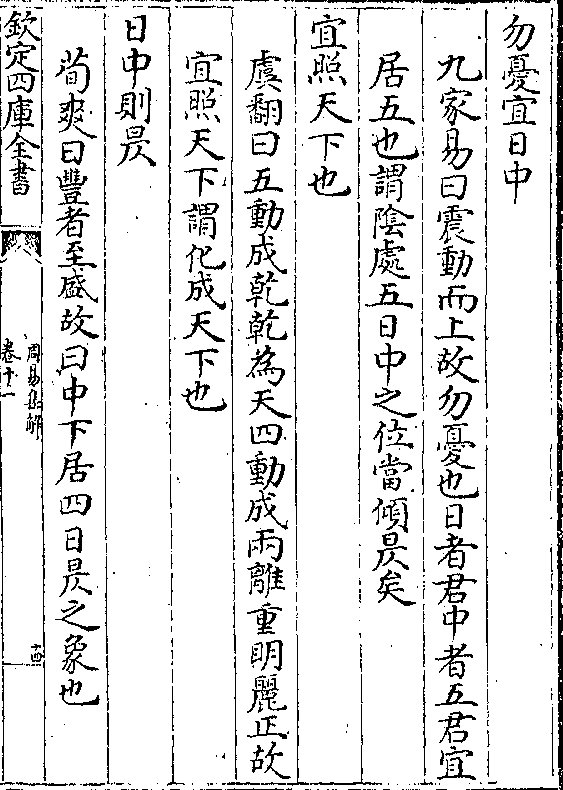 勿憂宜日中
九家易曰震動而上故勿憂也日者君中者五君宜
居五也謂陰處五日中之位當傾昃矣
宜照天下也
虞翻曰五動成乾乾為天四動成兩離重明麗正故
宜照天下謂化成天下也
日中則昃
荀爽曰豐者至盛故曰中下居四日昃之象也
欽定四庫全書
周易集解
卷十一
十四